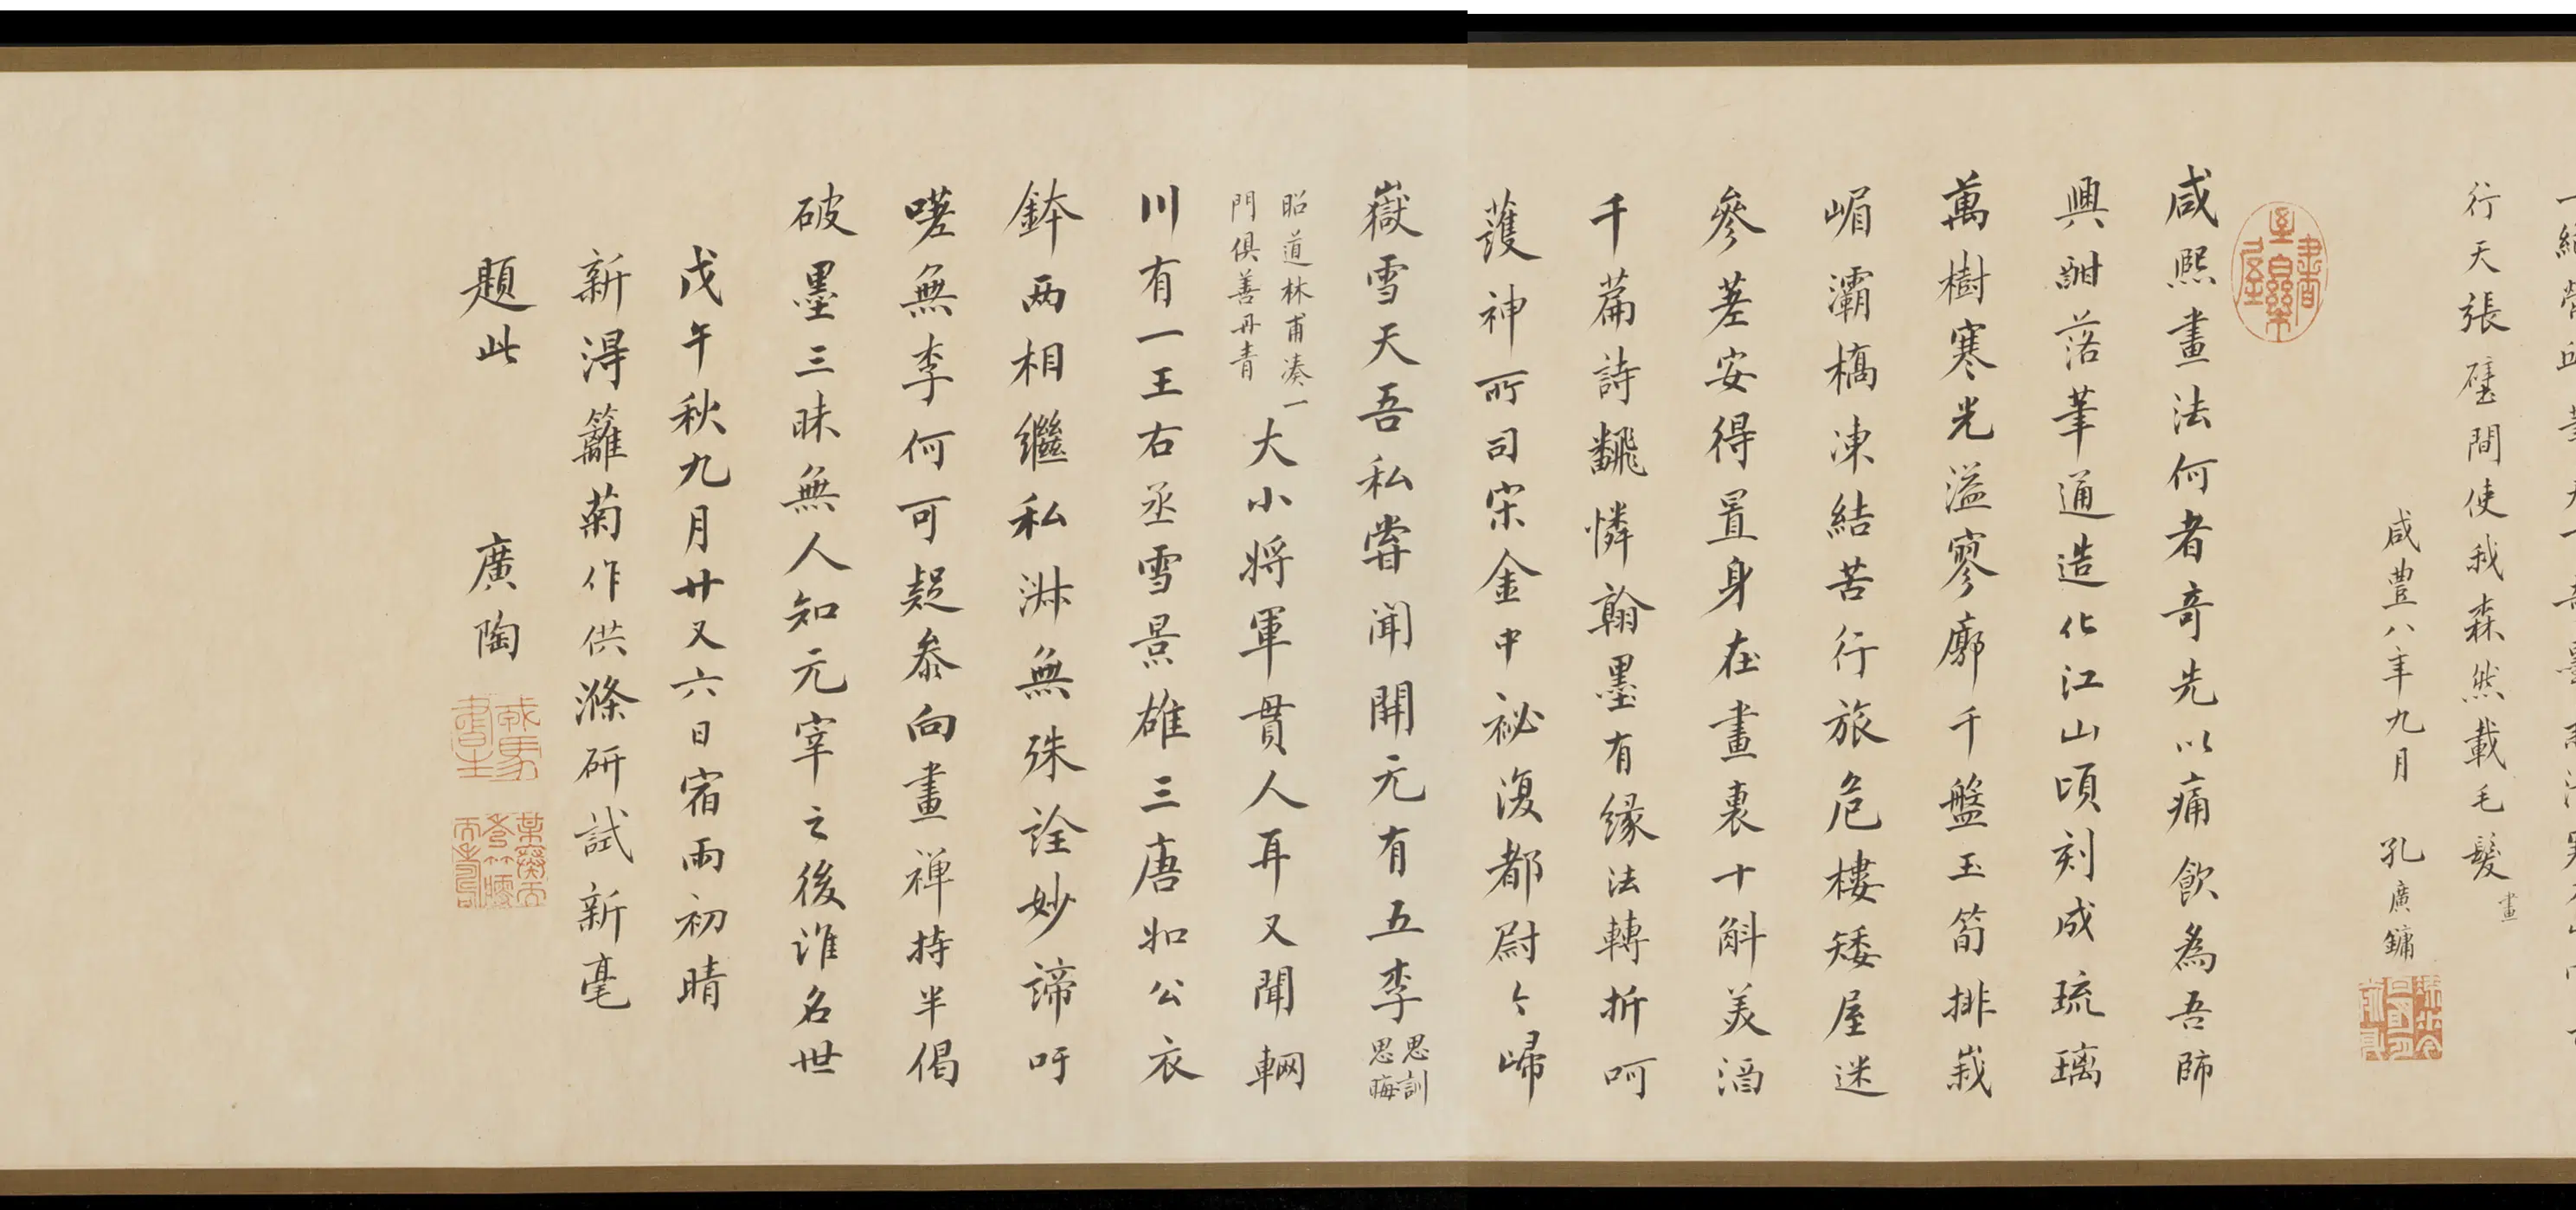 行天張壁間使我森然載毛髮
畫
咸豐八年九月 孔廣鏞
咸熙畫法何者奇先以痛飲為吾師
興酣落筆通造化江山頃刻成琉璃
萬樹寒光溢寥廓千盤玉筍排峩
嵋灞橋凍結苦行旅危樓矮屋迷
參差安得置身在畫裏十斛美酒
千萹詩飜憐翰墨有緣法轉折呵
護神所司宋金中祕復都尉々歸
嶽雪天吾私嘗聞開元有五李思訓思晦
昭道林甫湊一
門俱善丹青
大小將軍貫人耳又聞輞
川有一王右丞雪景雄三唐如公衣
鉢兩相繼私淑無殊詮妙諦吁
嗟無李何可疑參向畫禅持半偈
破墨三昧無人知元宰之後誰名世
戊午秋九月廿又六日宿雨初晴
新得籬菊作供滌研試新毫
題此 廣陶
戎馬書生